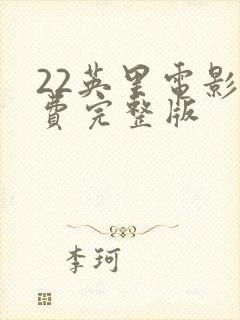 22英里电影
费完整版
李珂